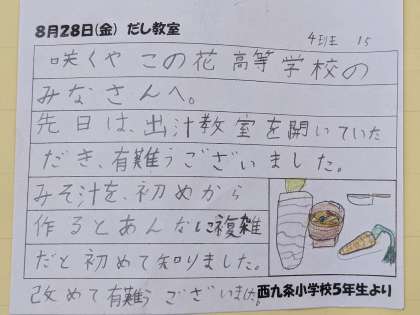 8月28日(金) だし教室
4班 15
咲くや この花 高等学校の
みなさんへ。
先日は、出汁教室を開いていた
だき、有難うございました。
みそ汁を、初めから
作るとあんなに複雑
だと初めて知りました。
改めて有難うございました。
西九条小学校5年生より